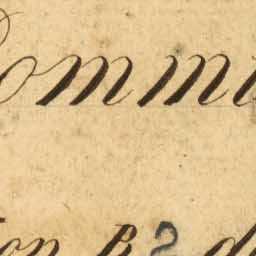 Commi
ton B 2 d